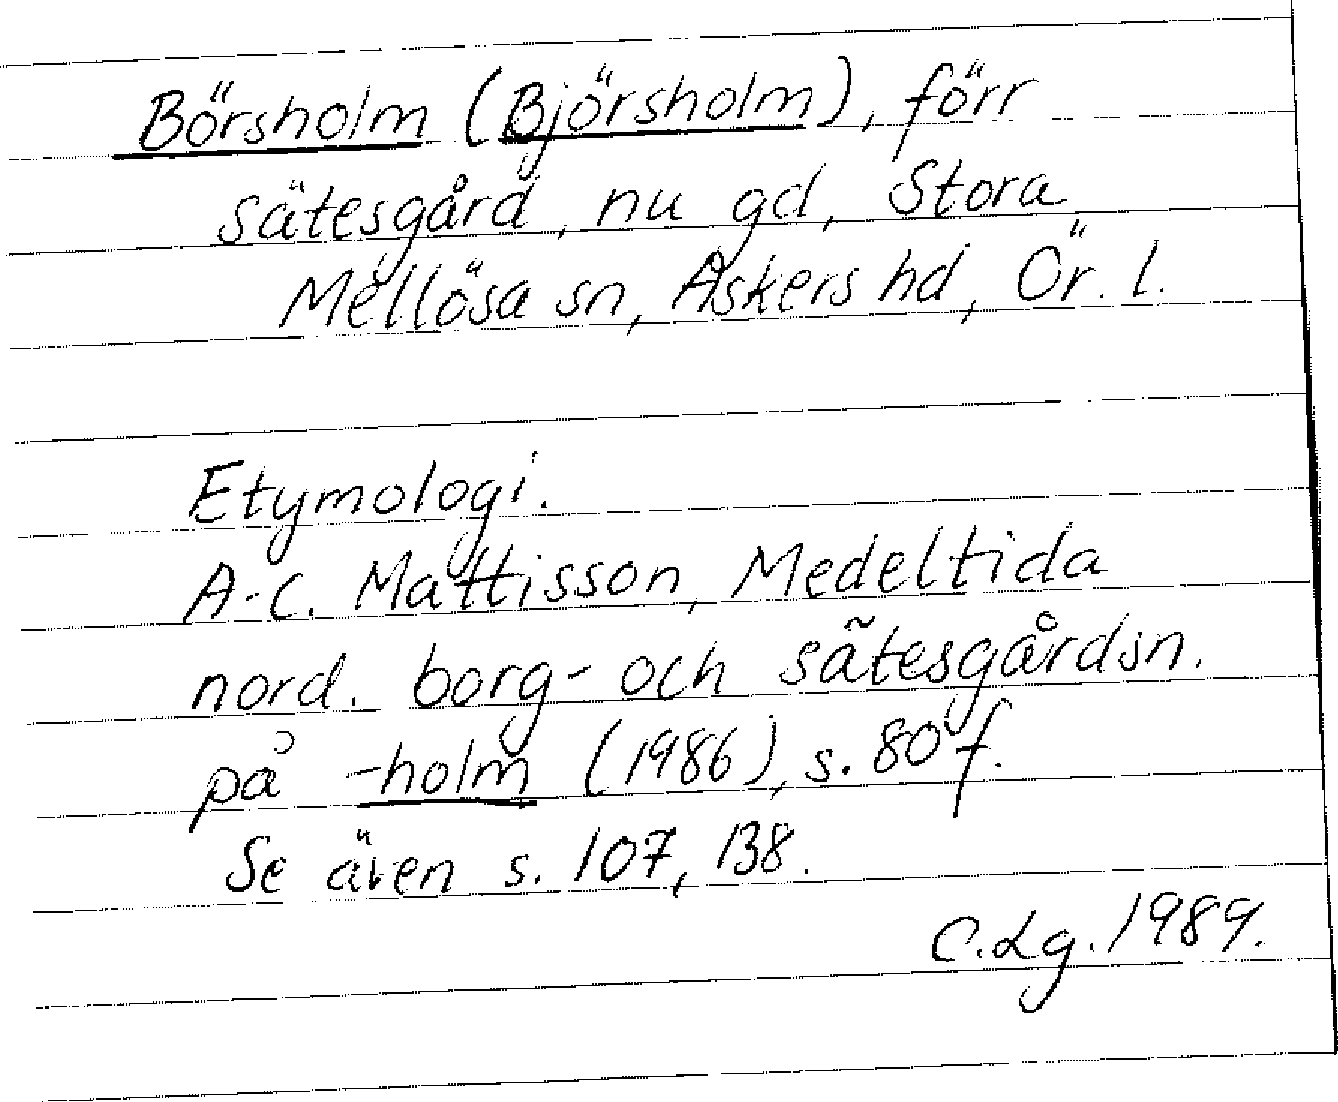 Börsholm (Björsholm), förr
sätesgård, nu gd, Stora
Mellösa sn, Askers hd, Ör. l.
Etymologi.
A-C. Mattisson, Medeltida
nord. borg- och sätesgårdsn.
på -holm (1986), s. 80 f.
Se även s. 107, 138.
C.Lg. 1989.